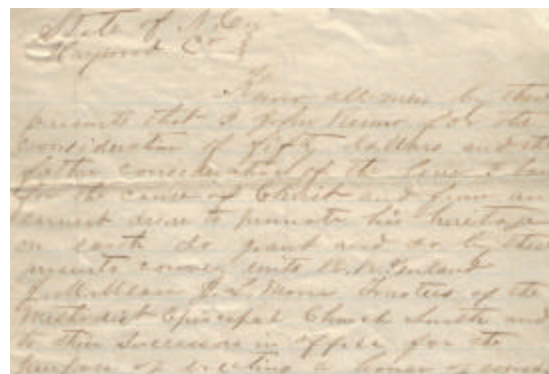 State of N.C.
Haywood Co
Know all men by these
presents that I John Nemo for the
consideration of fifty dollars and the
further consideration of the love I have
for the cause of Christ and from an
earnest desire to promote his heritage
on earth do grant and do by these
presents convey unto
Trustees of the
Methodist Episcopal Church South and
to their Successors in office for the
purpose of erecting a house of